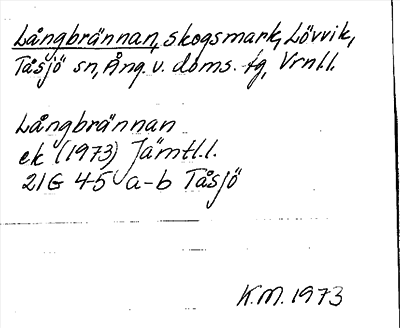 Långbrännan, skogsmark, Lövvik,
Tåsjö sn, Ång. v. doms. fg, Vrnl.l.
Långbrännan
ek (1973) Jämtl.l.
21G 4-5 a-b Tåsjö
K.M. 1973